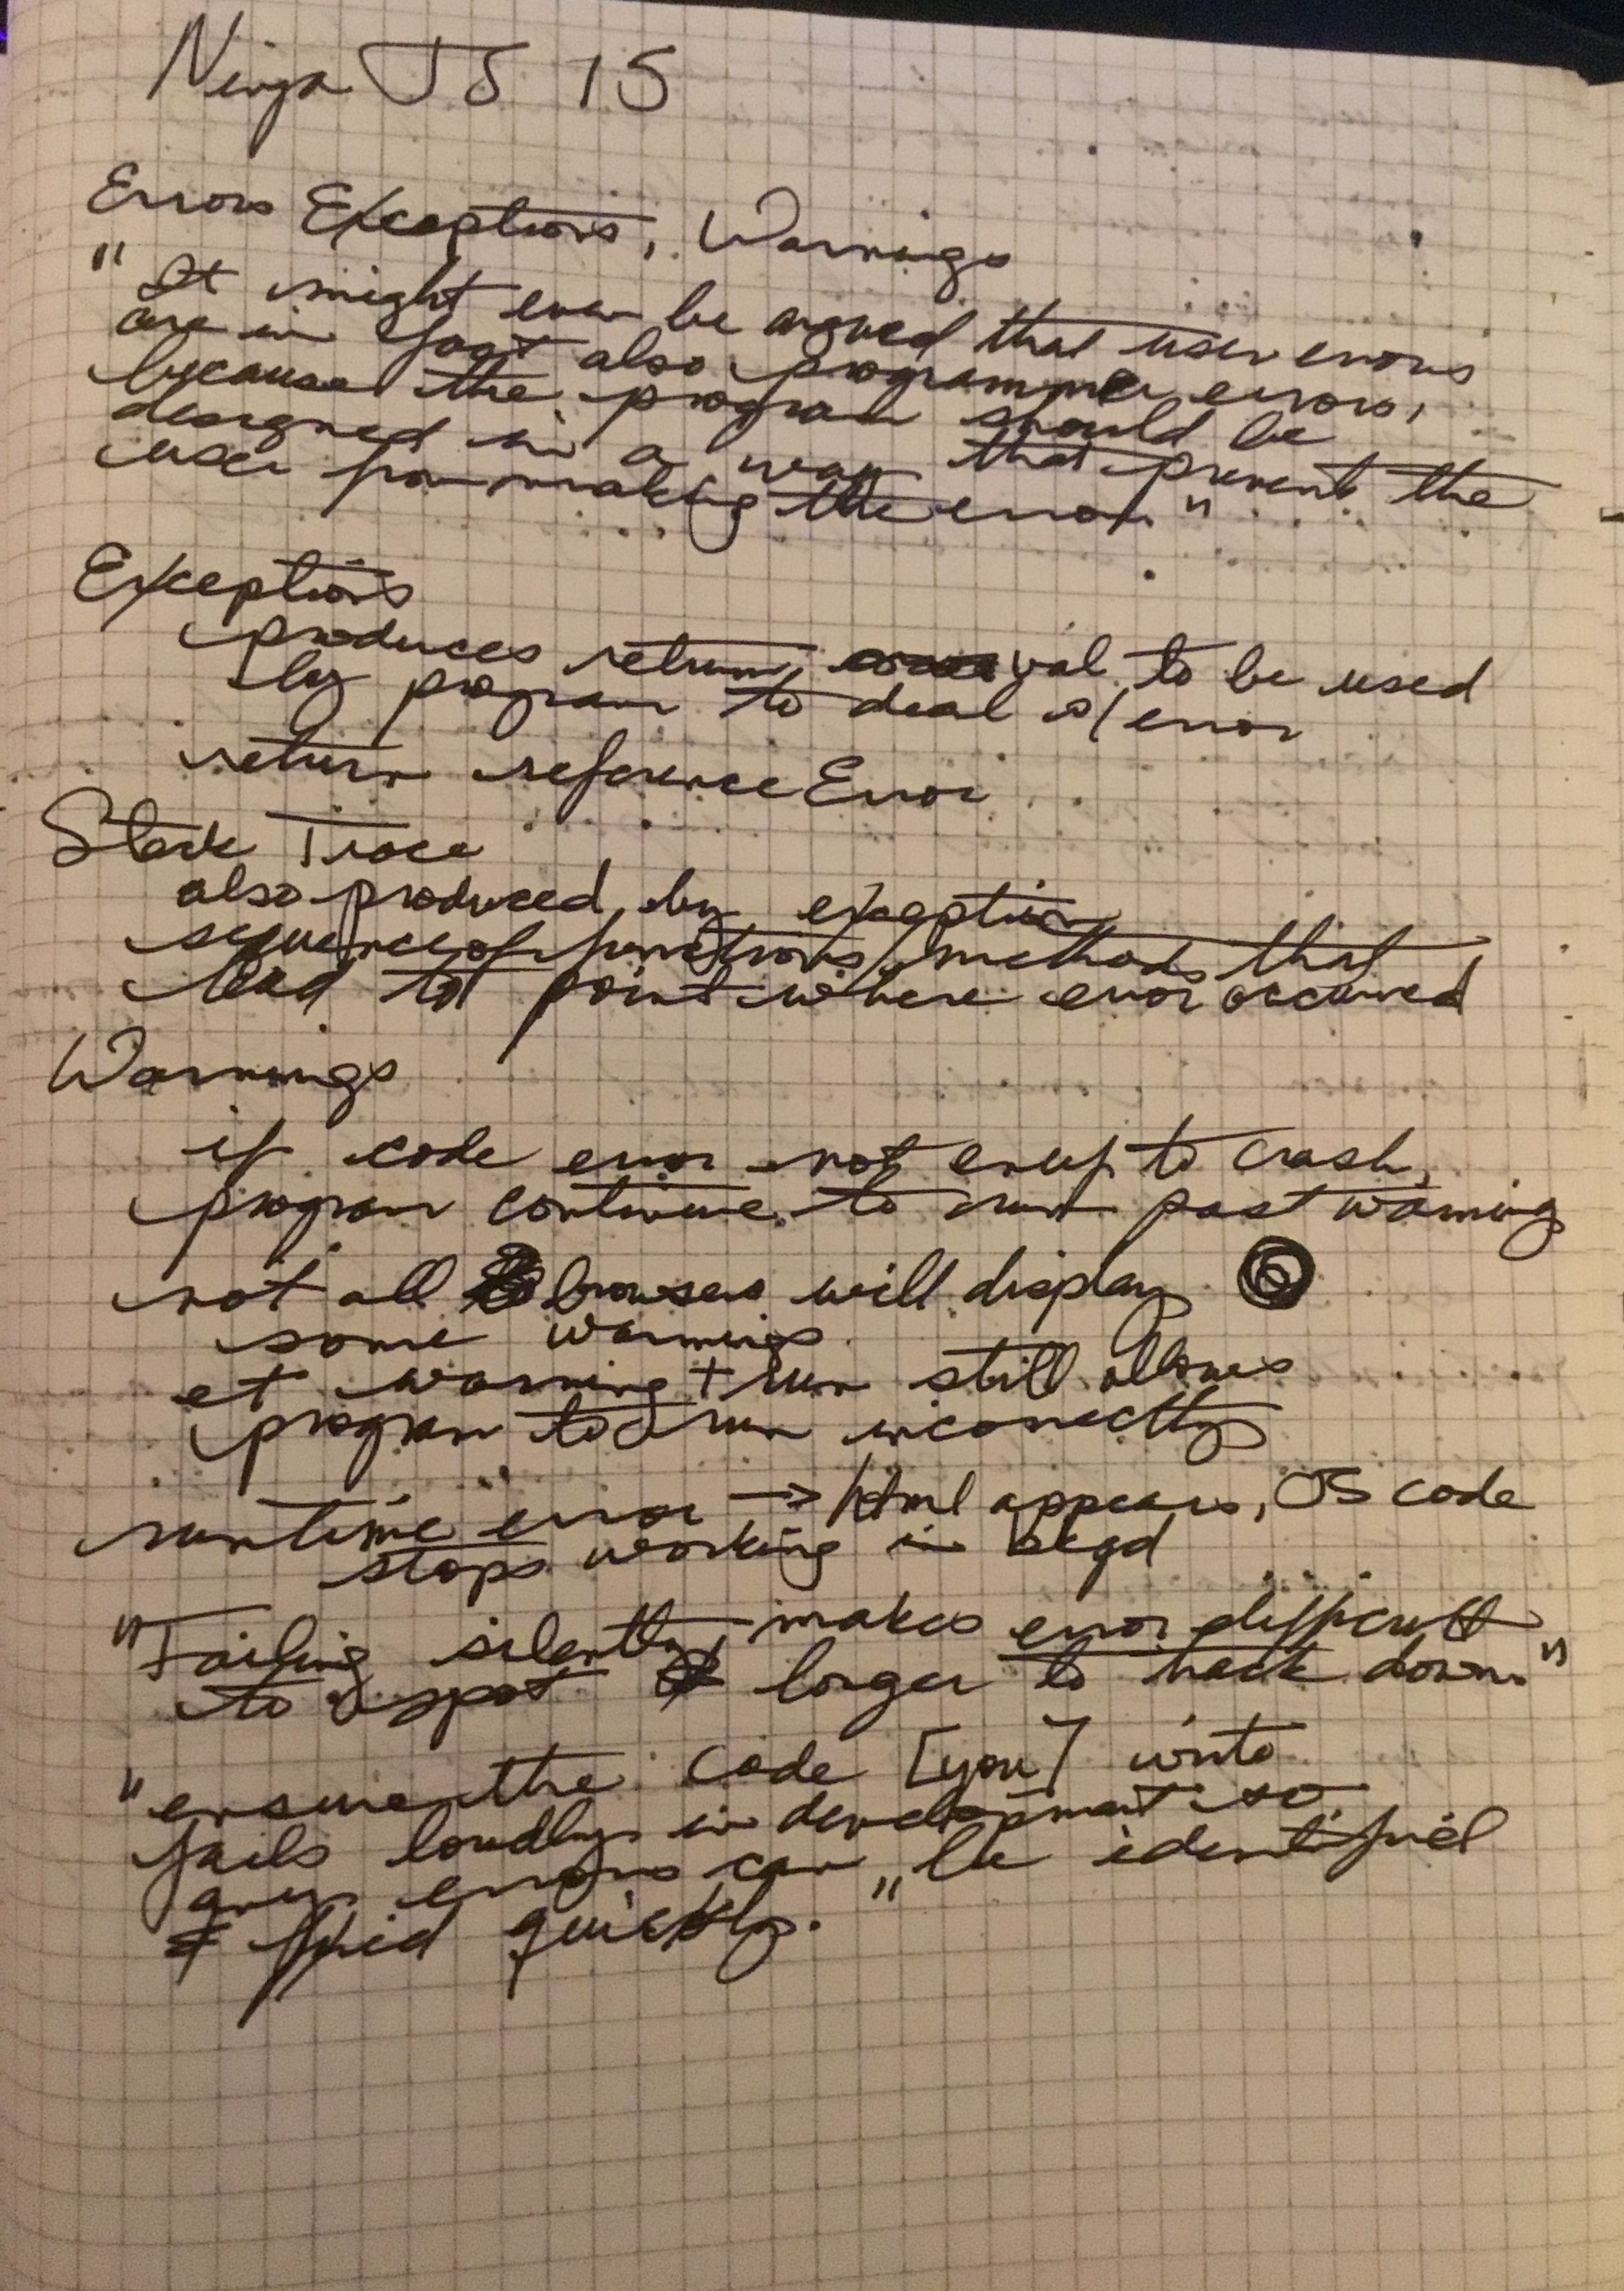 Ninja JS 15
Errors Exceptions, Warnings
"It might even be argued that user errors
are in fact also programmer errors,
because the program should be
designed in a way that prevents the
user from making the error."
Exceptions
produces return, val to be used
by program to deal w/ error
return reference Error
Stack Trace
also produced by exception
sequence of functions/methods that
lead to point where error occurred
Warnings
if code error not enuf to crash,
program continue to run past warning
not all browsers will display
some warnings
et warning + run still allows
program to run incorrectly
runtime error → html appears, JS code
stops working in bkgd
"Failing silently, makes error difficult
to spot & longer to track down."
"ensure the code [you] write
fails loudly in development so
any errors can be identified
& fixed quickly."